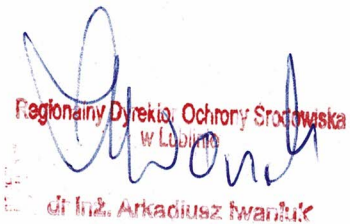 Regionalny Dyrektor Ochrony Środowiska
w Lublinie
dr inż. Arkadiusz Iwaniuk